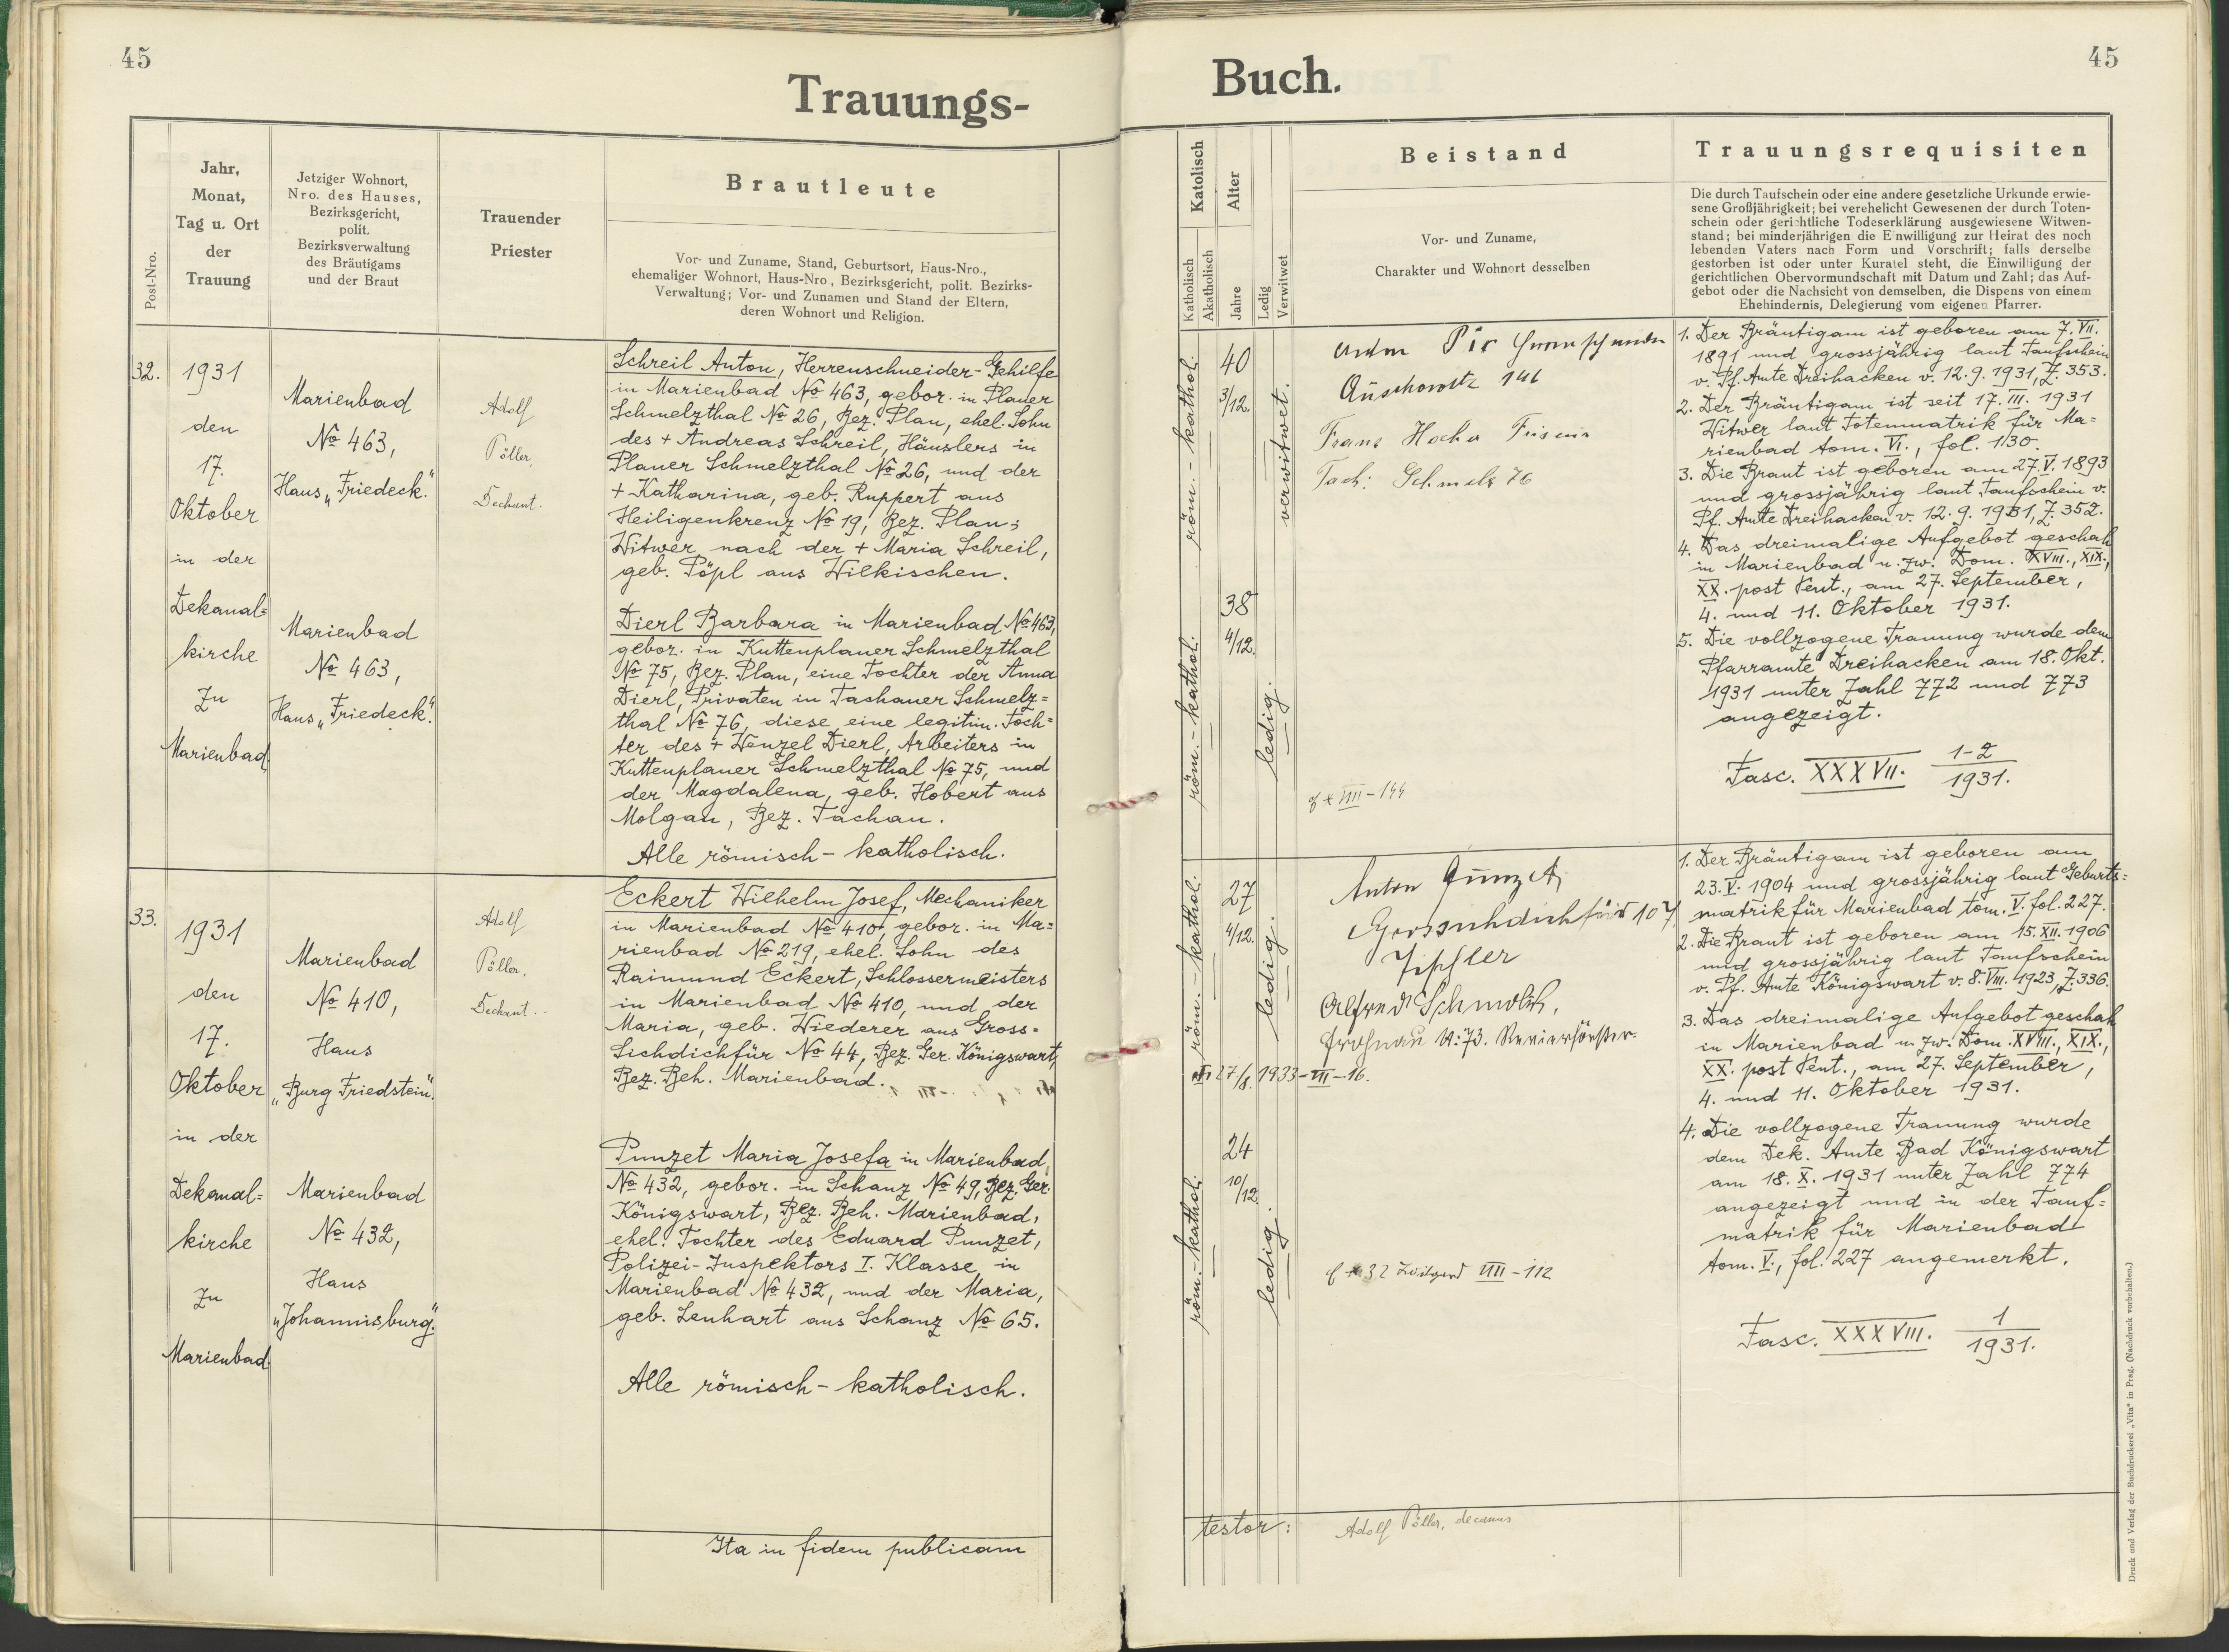 45
Trauungs-
Post-Nro.
Jahr,
Monat,
Tag u. Ort
der
Trauung
Jetziger Wohnort,
Nro. des Hauses,
Bezirksgericht,
polit.
Bezirksverwaltung
des Bräutigams
und der Braut
Trauender
Priester
Brautleute
Vor- und Zuname, Stand, Geburtsort, Haus-Nro.,
ehemaliger Wohnort, Haus-Nro, Bezirksgericht, polit. Bezirks-
Verwaltung; Vor- und Zunamen und Stand der Eltern,
deren Wohnort und Religion.
32.
1931
den
17.
Oktober
in der
Dekanal=
kirche
zu
Marienbad.
Marienbad
No 463,
Haus „Friedeck."
Marienbad
No 463,
Haus „Friedeck."
Adolf
Pöller,
Dechant.
Schreil Anton, Herrenschneider-Gehilfe
in Marienbad No 463, gebor. in Planer
Schmelzthal No 26, Bez. Plan, ehel. Sohn
des + Andreas Schreil, Häuslers in
Planer Schmelzthal No 26, und der
+ Katharina, geb. Ruppert aus
Heiligenkreuz No 19, Bez. Plan;
Witwer nach der + Maria Schreil,
geb. Pöpl aus Wilkischen.
Dierl Barbara in Marienbad No 463,
gebor. in Kuttenplaner Schmelzthal
No 75, Bez. Plan, eine Tochter der Anna
Dierl, Privaten in Tachauer Schmelz=
thal No 76, diese eine legitim. Toch=
ter des + Wenzel Dierl, Arbeiters in
Kuttenplaner Schmelzthal No 75, und
der Magdalena, geb. Hobert aus
Molgau, Bez. Tachau.
Alle römisch-katholisch.
33.
1931
den
17.
Oktober
in der
Dekanal=
kirche
zu
Marienbad.
Marienbad
No 410,
Haus
„Burg Friedstein".
Marienbad
No 432,
Haus
„Johannisburg".
Adolf
Pöller,
Dechant.
Eckert Wilhelm Josef, Mechaniker
in Marienbad No 410, gebor. in Ma=
rienbad No 219, ehel. Sohn des
Raimund Eckert, Schlossermeisters
in Marienbad No 410, und der
Maria, geb. Wiederer aus Gross-
Sichdichfür No 44, Bez. Ger. Königswart,
Bez. Beh. Marienbad.
Punzet Maria Josefa in Marienbad,
No 432, gebor. in Schanz No 49, Bez. Ger.
Königswart, Bez. Beh. Marienbad,
ehel. Tochter des Eduard Punzet,
Polizei-Inspektors I. Klasse in
Marienbad No 432, und der Maria,
geb. Lenhart aus Schanz No 65.
Alle römisch-katholisch.
Ita in fidem publicam
45
Buch.
Katolisch
Katholisch
Akatholisch
Alter
Jahre
Ledig
Verwitwet
Beistand
Vor- und Zuname,
Charakter und Wohnort desselben
Trauungsrequisiten
Die durch Taufschein oder eine andere gesetzliche Urkunde erwie-
sene Großjährigkeit; bei verehelicht Gewesenen der durch Toten-
schein oder gerichtliche Todeserklärung ausgewiesene Witwen-
stand; bei minderjährigen die Einwilligung zur Heirat des noch
lebenden Vaters nach Form und Vorschrift; falls derselbe
gestorben ist oder unter Kuratel steht, die Einwilligung der
gerichtlichen Obervormundschaft mit Datum und Zahl; das Auf-
gebot oder die Nachsicht von demselben, die Dispens von einem
Ehehindernis, Delegierung vom eigenen Pfarrer.
röm.-kathol.
40
3/12.
verwitwet.
röm.-kathol.
38
4/12.
ledig.
Anton
Auschowitz 146
Franz
Tach: Schmelz 76
VIII-144
1. Der Bräutigam ist geboren am 7. VII.
1891 und grossjährig laut Taufschein
v. Pf. Amte Dreihacken v. 12.9.1931, Z. 353.
2. Der Bräutigam ist seit 17. III. 1931
Witwer laut Totenmatrik für Ma=
rienbad tom. VI., fol. 130.
3. Die Braut ist geboren am 27. V. 1893
und grossjährig laut Taufschein v.
Pf. Amte Dreihacken v. 12.9.1931, Z. 352.
4. Das dreimalige Aufgebot geschah
in Marienbad u. zw. Dom. XVIII., XIX.,
XX. post Pent., am 27. September,
4. und 11. Oktober 1931.
5. Die vollzogene Trauung wurde dem
Pfarramte Dreihacken am 18. Okt.
1931 unter Zahl 772 und 773
angezeigt.
Fasc. XXXVII. 1-2
1931.
röm.-kathol.
27
4/12.
ledig.
röm.-kathol.
24
10/12
ledig.
Anton Punzet,
Grossichdichfür 107
Tischler
Alfred
Frohnau N: 73. Revierförster.
27/8. 1933-VII-16.
VIII-112
1. Der Bräutigam ist geboren am
23. V. 1904 und grossjährig laut Geburts=
matrik für Marienbad tom. V. fol. 227.
2. Die Braut ist geboren am 15. XII. 1906
und grossjährig laut Taufschein
v. Pf. Amte Königswart v. 8. VIII. 1923, Z. 336.
3. Das dreimalige Aufgebot geschah
in Marienbad u. zw. Dom. XVIII., XIX.,
XX. post Pent., am 27. September,
4. und 11. Oktober 1931.
4. Die vollzogene Trauung wurde
dem Dek. Amte Bad Königswart
am 18. X. 1931 unter Zahl 774
angezeigt und in der Tauf=
matrik für Marienbad
tom. V., fol. 227 angemerkt.
Fasc. XXXVIII. 1
1931.
testor: Adolf Pöller, decanus
Druck und Verlag der Buchdruckerei „Vita" in Prag. (Nachdruck vorbehalten.)